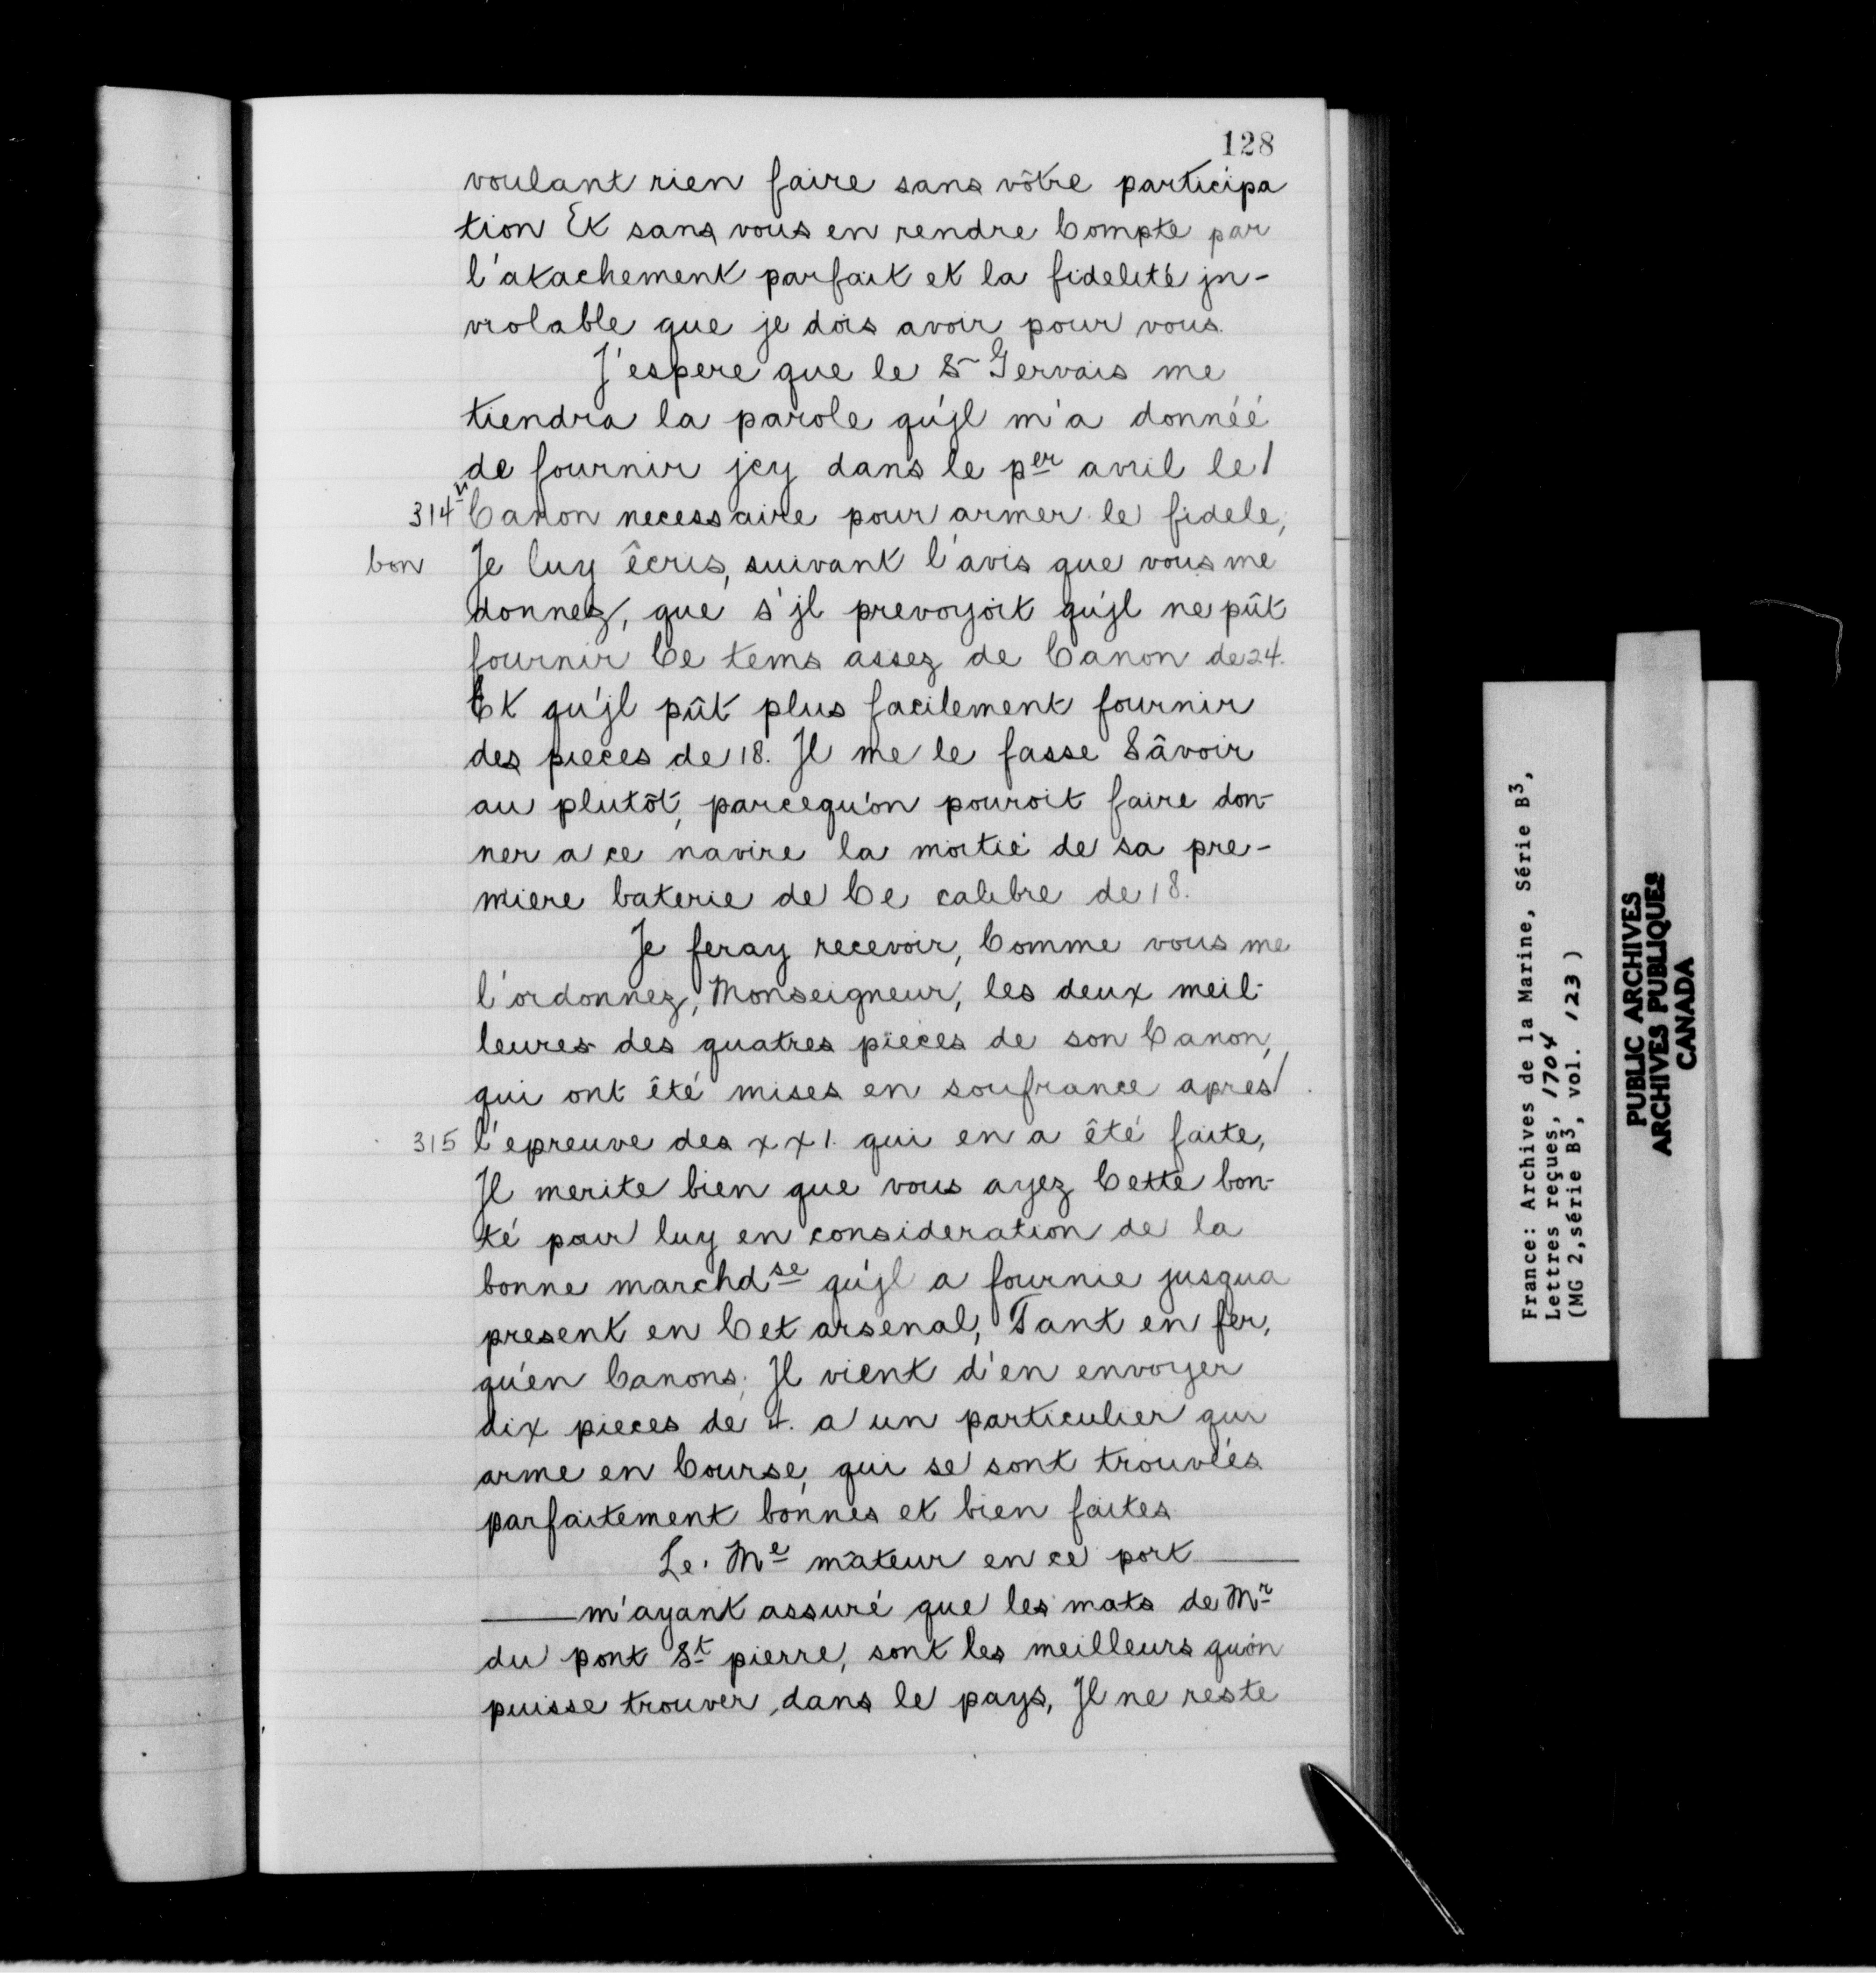 128
voulant rien faire sans vôtre participa
tion Et sans vous en rendre Compte par
l'atachement parfait et la fidelité jn-
violable que je dois avoir pour vous.
J'espere que le Sr Gervais me
tiendra la parole qu'jl m'a donnéé
de fournir jcy dans le per avril le/
314v Canon necessaire pour armer le fidele,
bon Je luy êcris, suivant l'avis que vous me
donnez, que s'jl prevoyoit qu'jl ne pût
fournir Ce tems assez de Canon de 24.
Et qu'jl pût plus facilement fournir
des pieces de 18. Jl me le fasse Sâvoir
au plutôt, parcequ'on pouroit faire don-
ner a ce navire la moitié de sa pre-
miere baterie de Ce calibre de 18.
Je feray recevoir, Comme vous me
l'ordonnez, Monseigneur, les deux meil-
leures des quatres pieces de son Canon,
qui ont êté mises en soufrance apres/
315 l'epreuve des xx1. qui en a êté faite,
Jl merite bien que vous ayez Cette bon-
té pour luy en consideration de la
bonne marchdse qu'jl a fournie jusqua
present en Cet arsenal, Tant en fer,
qu'en Canons; Jl vient d'en envoyer
dix pieces de 4. a un particulier qui
arme en Course, qui se sont trouvéés
parfaitement bonnes et bien faites
Le. Me mateur en ce port
m'ayant assuré que les mats de Mr
du pont St pierre, sont les meilleurs qu'on
puisse trouver, dans le pays, Jl ne reste
France: Archives de la Marine, Série B3,
Lettres reçues, 1704
(MG 2, série B3, vol. 123)
PUBLIC ARCHIVES
ARCHIVES PUBLIQUES
CANADA